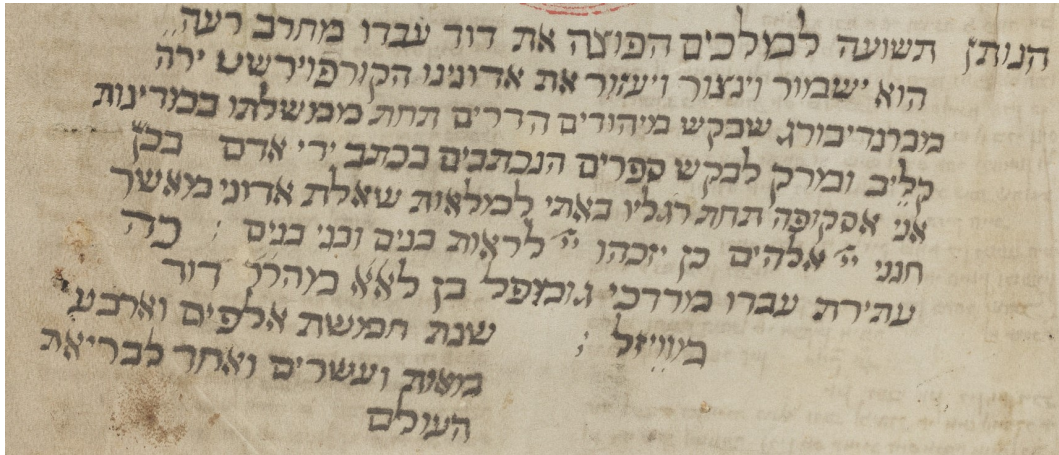 הנותן תשועה למלכים הפוצה את דוד עבדו מחרב רעה
הוא ישמור וינצור ויעזור את אדונינו הקורפוירשט ירה
מברנדיבורג שבקש מיהודים הדרים תחת ממשלתו במדינות
קליב ומרק לבקש ספרים הנכתבים בכתב ידי אדם בכן
אני אסקופה תחת רגליו באתי למלאות שאלת אדוני מאשר
חנני יי׳ אלהים כן יזכהו יי׳ לראות בנים ובני בנים ; כה
עתירת עבדו מרדכי גומפל בן לאא מהרר דוד
מוויזל ; שנת חמשת אלפים וארבע
מאות ועשרים ואחד לבריאת
העולם